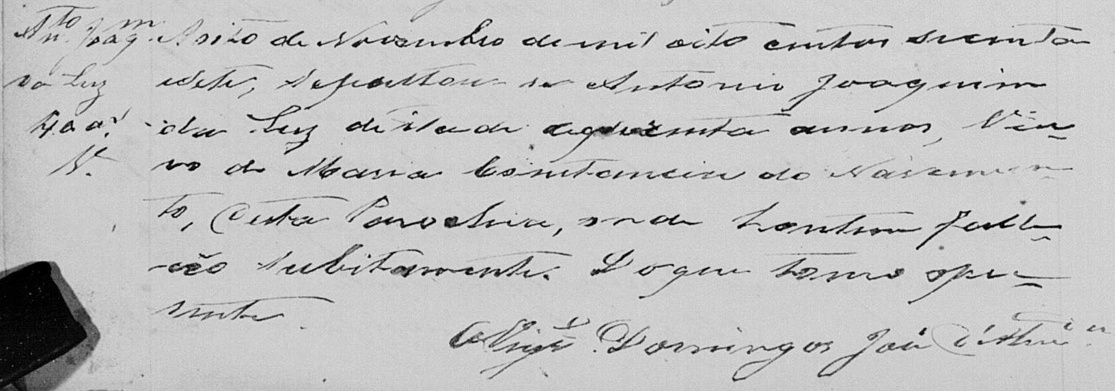 Anto. Joaqm.
da Luz
40 as.
V.
A oito de Novembro de mil oito centos secenta
esete, sepultou-se Antonio Joaquim
da Luz de idade de quarenta annos, Viu-
vo de Maria Constancia do Nascimen-
to, desta Parochia, onde hontem falle-
ceo subitamente. Do que tomo o pre-
sente.
O Vigro. Domingos José d'